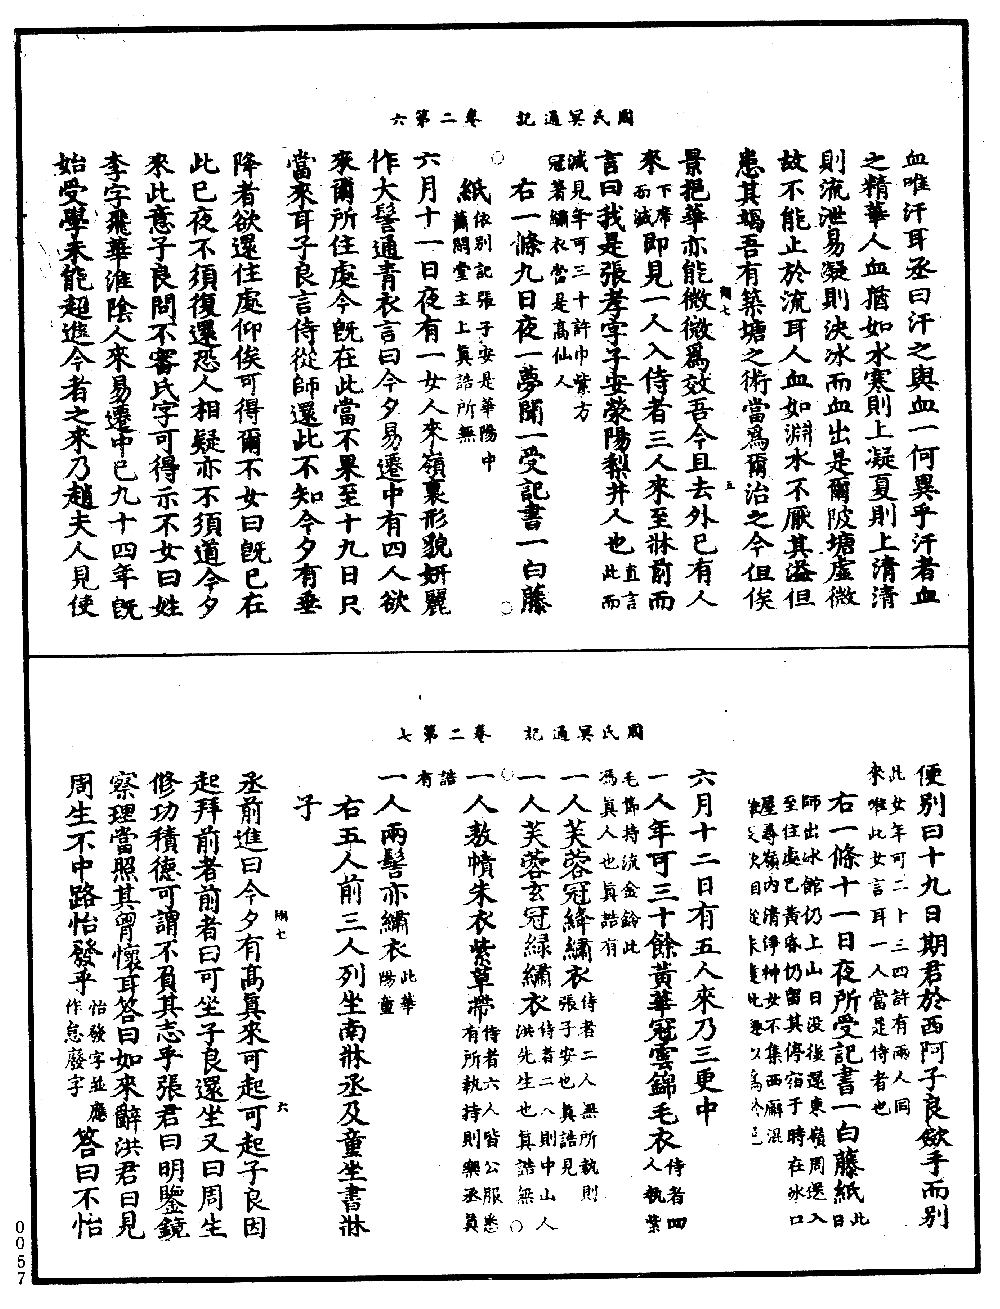 周氏冥通記　卷二第六
血唯汗耳丞曰汗之與血一何異乎汗者血
之精華人血猶如水寒則上凝夏則上清清
則流泄易凝則決冰而血出是爾陂塘虛微
故不能止於流耳人血如淵水不厭其溢但
患其竭吾有築塘之術當爲爾治之今但俟
景挹華亦能微微爲效吾今且去外已有人
來下席而滅即見一人入侍者三人來至牀前而
言曰我是張孝字子安滎陽梨井人也直言此而
滅見年可三十許巾紫方
冠著繡衣當是高仙人
右一條九日夜一夢聞一受記書一白藤
紙依別記張子安是華陽中
蕭閒堂主上真誥所無
六月十一日夜有一女人來嶺裏形貌妍麗
作大髻通青衣言曰今夕易遷中有四人欲
來爾所住處今既在此當不果至十九日只
當來耳子良言侍從師還此不知今夕有垂
降者欲還住處仰俟可得爾不女曰既已在
此已夜不須復還恐人相疑亦不須道今夕
來此意子良問不審氏字可得示不女曰姓
李字飛華淮陰人來易遷中已九十四年既
始受學未能超進今者之來乃趙夫人見使
周氏冥通記　卷二第七
便別曰十九日期君於西阿子良斂手而別
此女年可二十三四許有兩人同
來唯此女言耳一人當是侍者也
右一條十一日夜所受記書一白藤紙此日
師出冰館仍上山日沒後還東嶺周還入
至住處已黃昏仍留其停宿于時在冰口
屋尋嶺內清淨神女不集西廨混
六月十二日有五人來乃三更中
一人年可三十餘黃華冠雲錦毛衣侍者四人執紫
毛節持流金鈴此
馮真人也真誥有
一人芙蓉冠絳繡衣侍者二人無所執則
張子安也真誥見
一人芙蓉玄冠綠繡衣侍者二人則中山人
洪先生也真誥無
一人敖幘朱衣紫草帶侍者六人皆公服悉
有所執持則樂丞真
誥有
一人兩髻亦繡衣此華
陽童
右五人前三人列坐南牀丞及童坐書牀
子
丞前進曰今夕有高真來可起可起子良因
起拜前者前者曰可坐子良還坐又曰周生
修功積德可謂不負其志乎張君曰明鑒鏡
察理當照其胷懷耳答曰如來辭洪君曰見
周生不中路怡發乎怡發字並應作怠廢字答曰不怡
隅七
五
隅七
六
0057